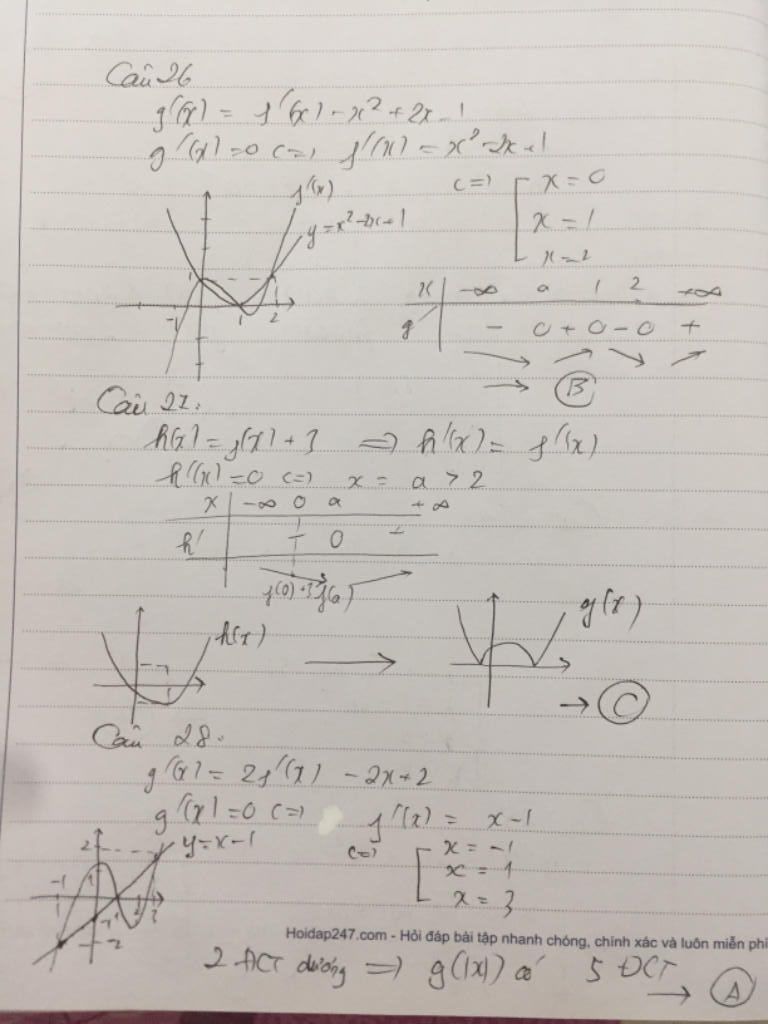 Câu 26
g'(x) = f'(x) - x² + 2x - 1
g'(x) = 0 <=> f'(x) = x² - 2x + 1
<=> [ x = 0
x = 1
x = 2
f'(x)
y = x² - 2x + 1
1
-1 1 2
x -∞ 0 1 2 +∞
g' - 0 + 0 - 0 +
→ B
Câu 27:
h(x) = f(x) + 3 => h'(x) = f'(x)
h'(x) = 0 <=> x = a > 2
x -∞ 0 a +∞
h' - 0 +
f(0)+3 f(a)
h(x)
g(x)
→ C
Câu 28.
g'(x) = 2f'(x) - 2x + 2
g'(x) = 0 <=> f'(x) = x - 1
<=> [ x = -1
x = 1
x = 3
y = x - 1
2
-1 1 1 2 3
-1
-2
Hoidap247.com - Hỏi đáp bài tập nhanh chóng, chính xác và luôn miễn phí
2 ĐCT dương => g(|x|) có 5 ĐCT
→ A